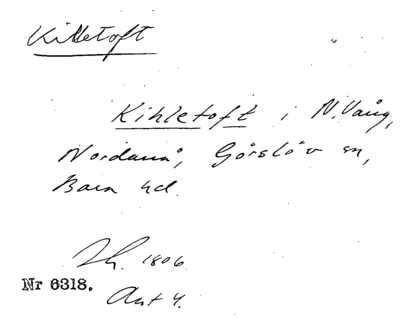 Killetoft
Kihletoft i N. Vång,
Nordanå, Görslöv sn,
Bara hd.
1806
Nr 6318.
Akt 4.